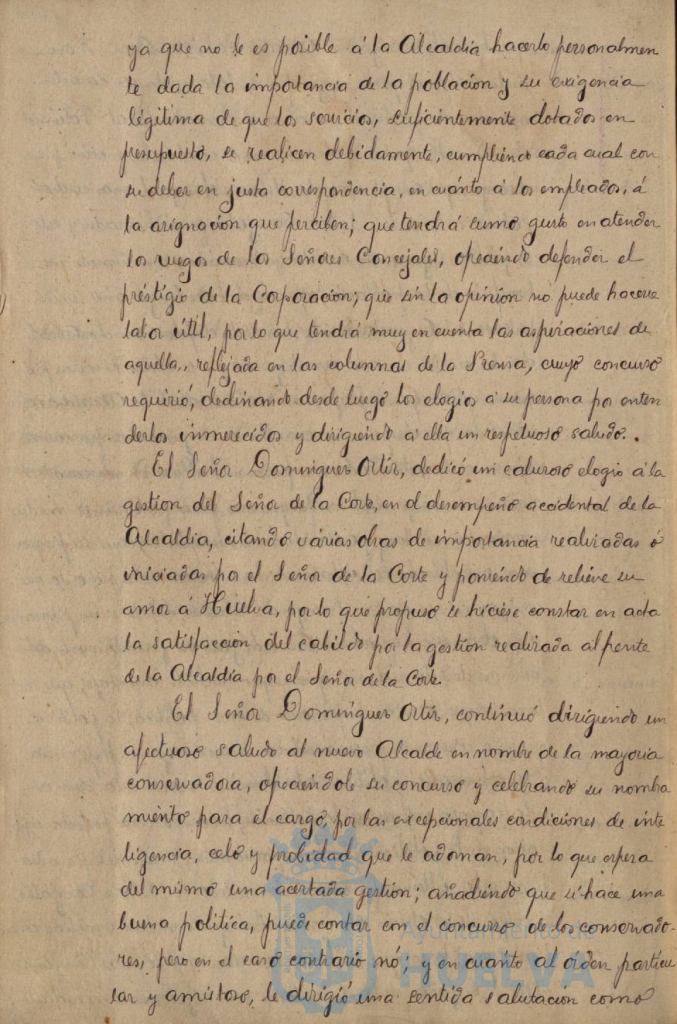 ya que no le es posible á la Alcaldia hacerlo personalmen
te dada la importancia de la poblacion y su exigencia
légitima de que los servicios, suficientemente dotados en
presupuesto, se realicen debidamente, cumpliendo cada cual con
su deber en justa correspondencia, en cuánto á los empleados, á
la asignacion que perciben; que tendrá sumo gusto en atender
los ruegos de los Señores Concejales, opeciendo defender el
prestigio de la Corporacion; que sin la opinion no puede hacerse
labor útil, por lo que tendrá muy en cuenta las aspiraciones de
aquella, reflejada en las columnas de la Prensa, cuyo concurso
requirió, declinando desde luego los elogios a su persona por enten
derlos inmerecidos y dirigiendo a ella un respetuoso saludo.
El Señor Dominguez Ortiz, dedicó un caluroso elogio á la
gestion del Señor de la Corte, en el desempeño accidental de la
Alcaldia, citando várias obras de importancia realizadas ó
iniciadas por el Señor de la Corte y poniendo de relieve su
amor á Huelva, por lo que propuso se hiciese constar en acta
la satisfacción del cabildo por la gestion realizada al frente
de la Alcaldía por el Señor de la Corte.
El Señor Dominguez Ortiz, continuó dirigiendo un
afectuoso saludo al nuevo Alcalde en nombre de la mayoria
conservadora, opeciendole su concurso y celebrando su nombra
miento para el cargo, por las excepcionales condiciones de inte
ligencia, celo y probidad que le adornan, por lo que espera
del mismo una acertada gestion; añadiendo que si hace una
buena politica, puede contar con el concurso de los conservado-
res, pero en el caso contrario nó; y en cuánto al órden particu
lar y amistoso, le dirigió una sentida salutación como
Ayuntamiento
HUELVA